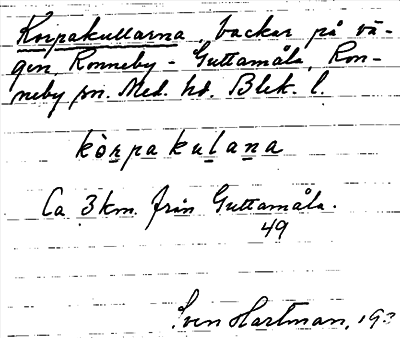 Korpakullarna, backar på vä-
gen Ronneby - Guttamåla, Ron-
neby sn. Med. hd. Blek. l.
kòrpakulana
Ca 3 km. från Guttamåla.
49
Sven Hartman, 193